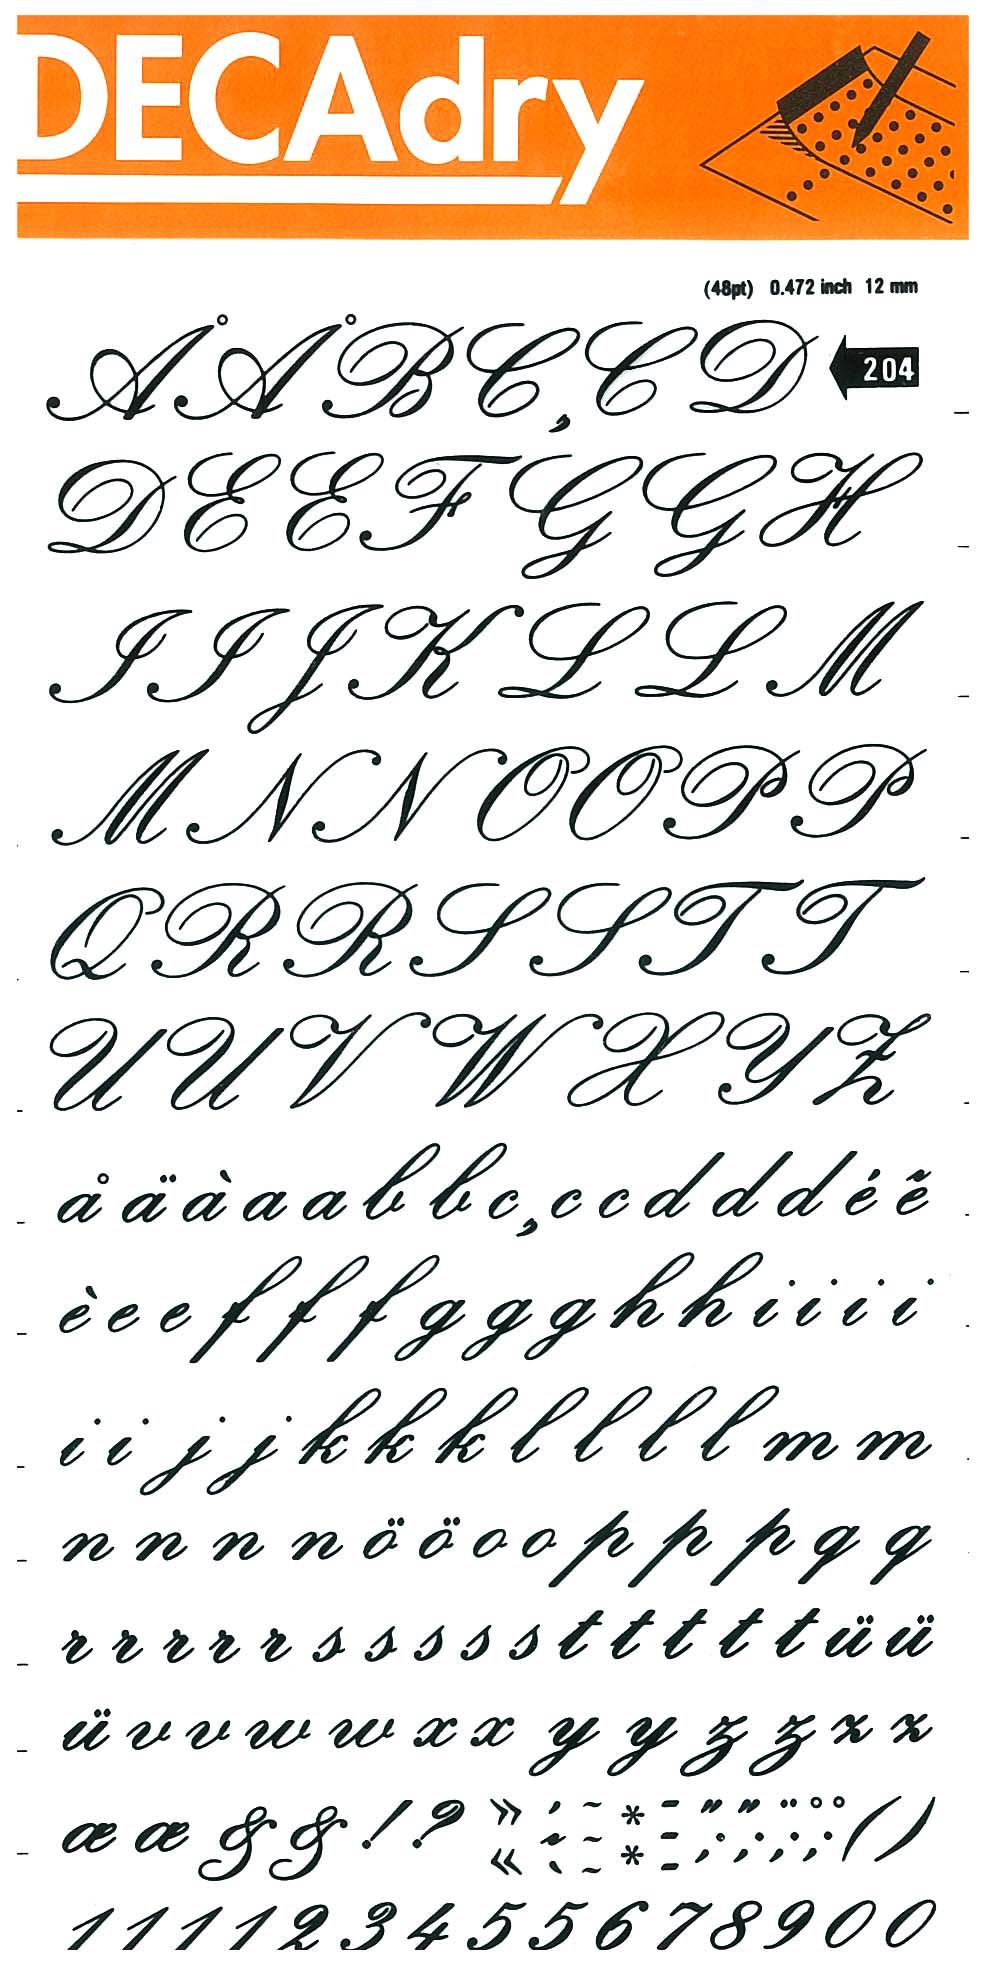 DECAdry
(48pt) 0.472 inch 12 mm
Å Å B Ç C D 204
D E E F G G H
I I J K L L M
M N N O O P P
Q R R S S T T
U U V W X Y Z
å ä à a a b b ç c c d d d é ẽ
è e e f f f g g g h h i i i i
i i j j k k k l l l l m m
n n n n ö ö o o p p p q q
r r r r r s s s s s t t t t t ü ü
ü v v w w x x y y z z z z
æ æ & & ! ? » ´ ~ * - " " ¨ ° ° ( )
« ` ~ ~ * - ; ; ; ;
1 1 1 1 2 3 4 5 5 6 7 8 9 0 0